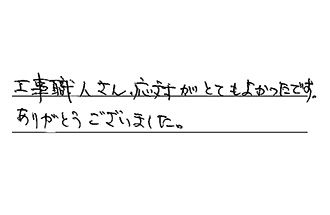 工事職人さん、応対がとてもよかったです。
ありがとうございました。